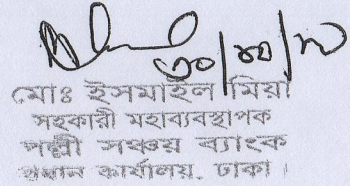 মোঃ ইসমাইল মিয়া
সহকারী মহাব্যবস্থাপক
পল্লী সঞ্চয় ব্যাংক
প্রধান কার্যালয়, ঢাকা।